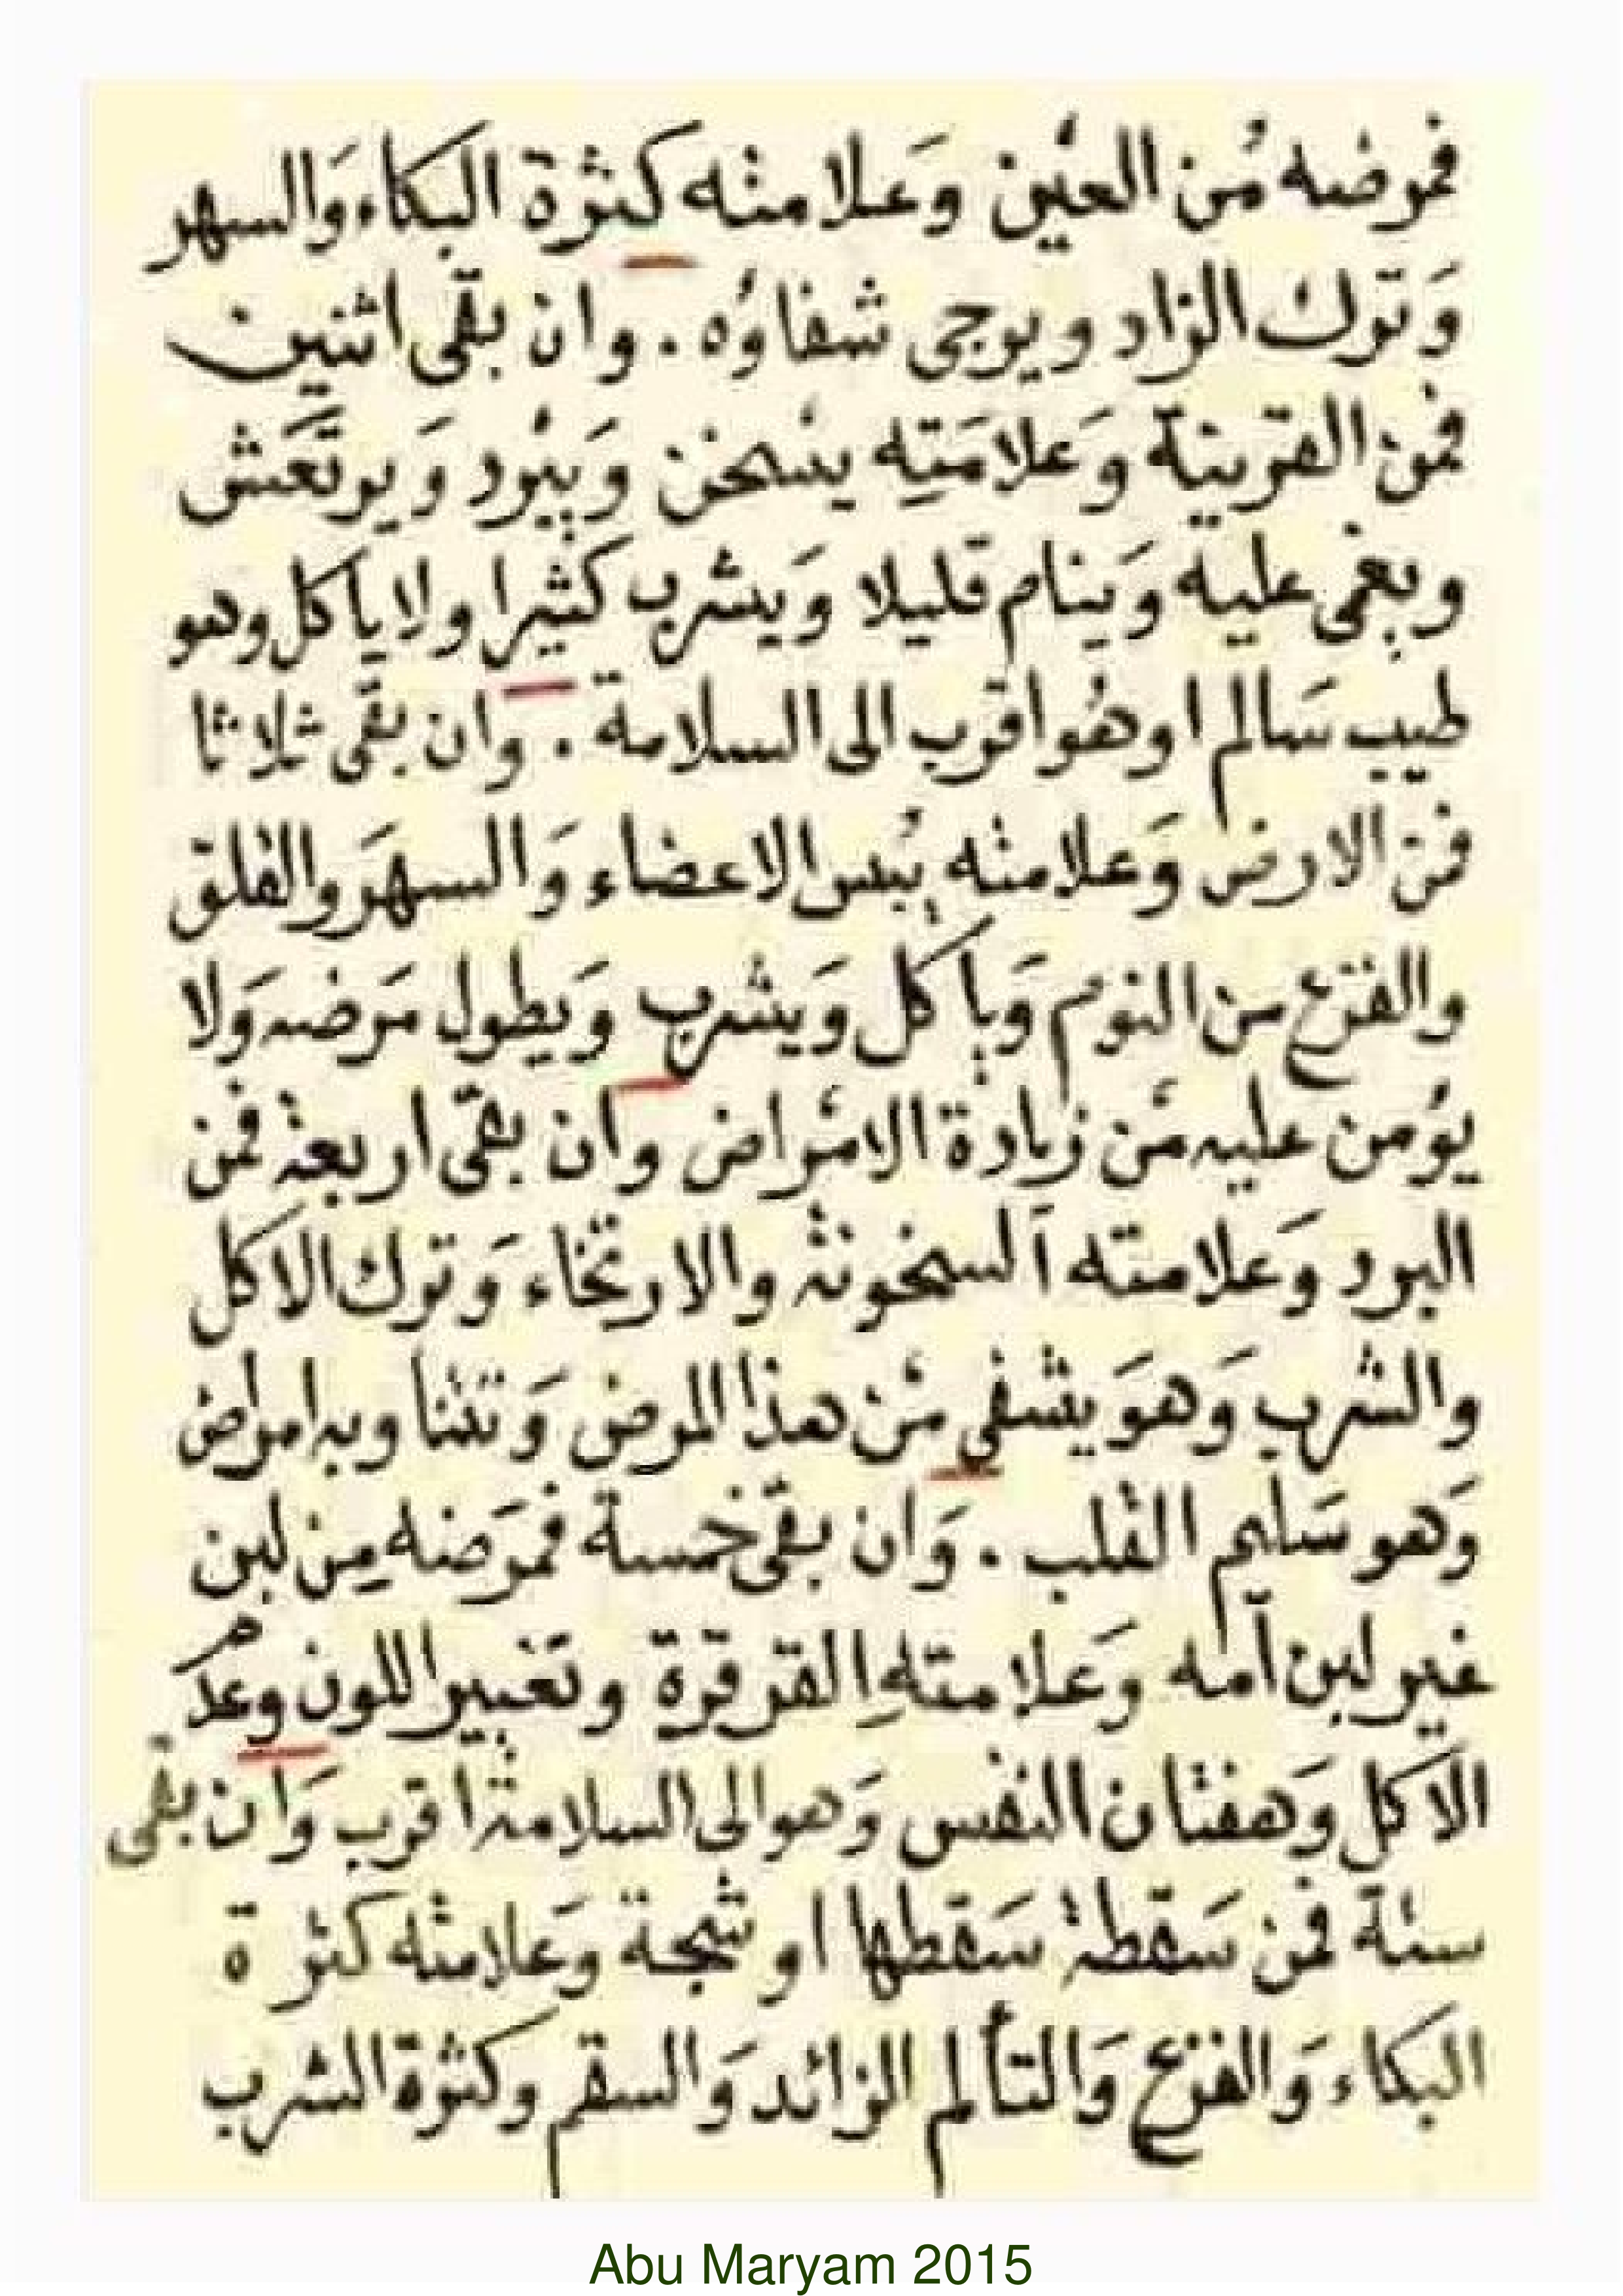 فمرضه مُن العين وَعلامته كثرة البكاء وَالسهر
وَترك الزاد ويرجى شفاؤه . وان بقى اثنين
فمن القرينة وَعلامَتِه يسخن وَيبرد وَيرتعَش
ويغمى عليه وَينام قليلا وَيشرب كثيرا ولا ياكل وهو
طيب سَالم ا وهُو اقرب الى السلامة . وان بقى ثلاثا
فمن الارض وَعلامته يُبس الاعضاء وَالسهَر والقلق
والفزع من النوم وَياكل وَيشرب وَيطول مَرضه وَلا
يؤمن عليه من زيادة الامراض وان بقى اربعة فمن
البرد وَعلامته آلسخونة والارتخاء وَترك الاكل
والشرب وَهوَ يشفى من هذا المرض وَتتنا وبه امراض
وَهو سَليم القلب . وَان بقى خمسة فمرَضه مِن لبن
غير لبن آمه وَعلامتهِ القرقرة وتغيير اللون وعدم
الاكل وَهفتان النفس وَهو الى السلامة اقرب وَان بقى
ستة فمن سَقطة سَقطها او شجة وَعلامته كثرة
البكاء وَالفزع وَالتألم الزائد وَالسقم وكثرة الشرب
Abu Maryam 2015